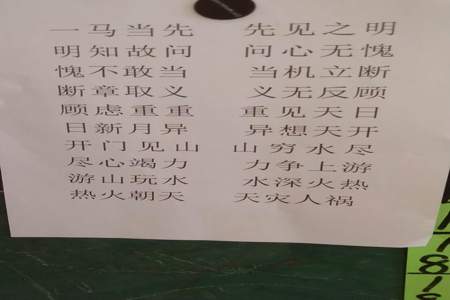 一马当先 先见之明
明知故问 问心无愧
愧不敢当 当机立断
断章取义 义无反顾
顾虑重重 重见天日
日新月异 异想天开
开门见山 山穷水尽
尽心竭力 力争上游
游山玩水 水深火热
热火朝天 天灾人祸